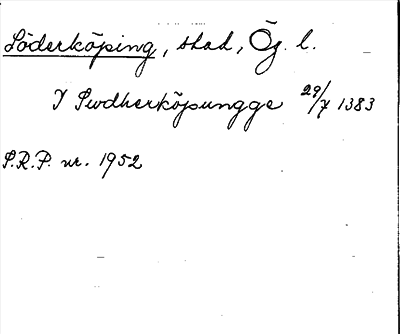 Söderköping, stad, Ög. l.
I Swdherköpungge 29/7 1383
S.R.P. nr. 1952